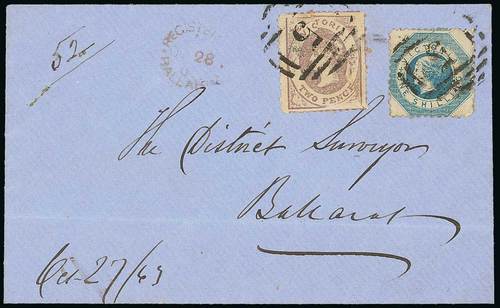 52
REGISTE
28
BALLAR
VICTORIA
TWO PENCE
VICTORIA
ONE SHILLING
The District Surveyor
Ballarat
Oct 27/63